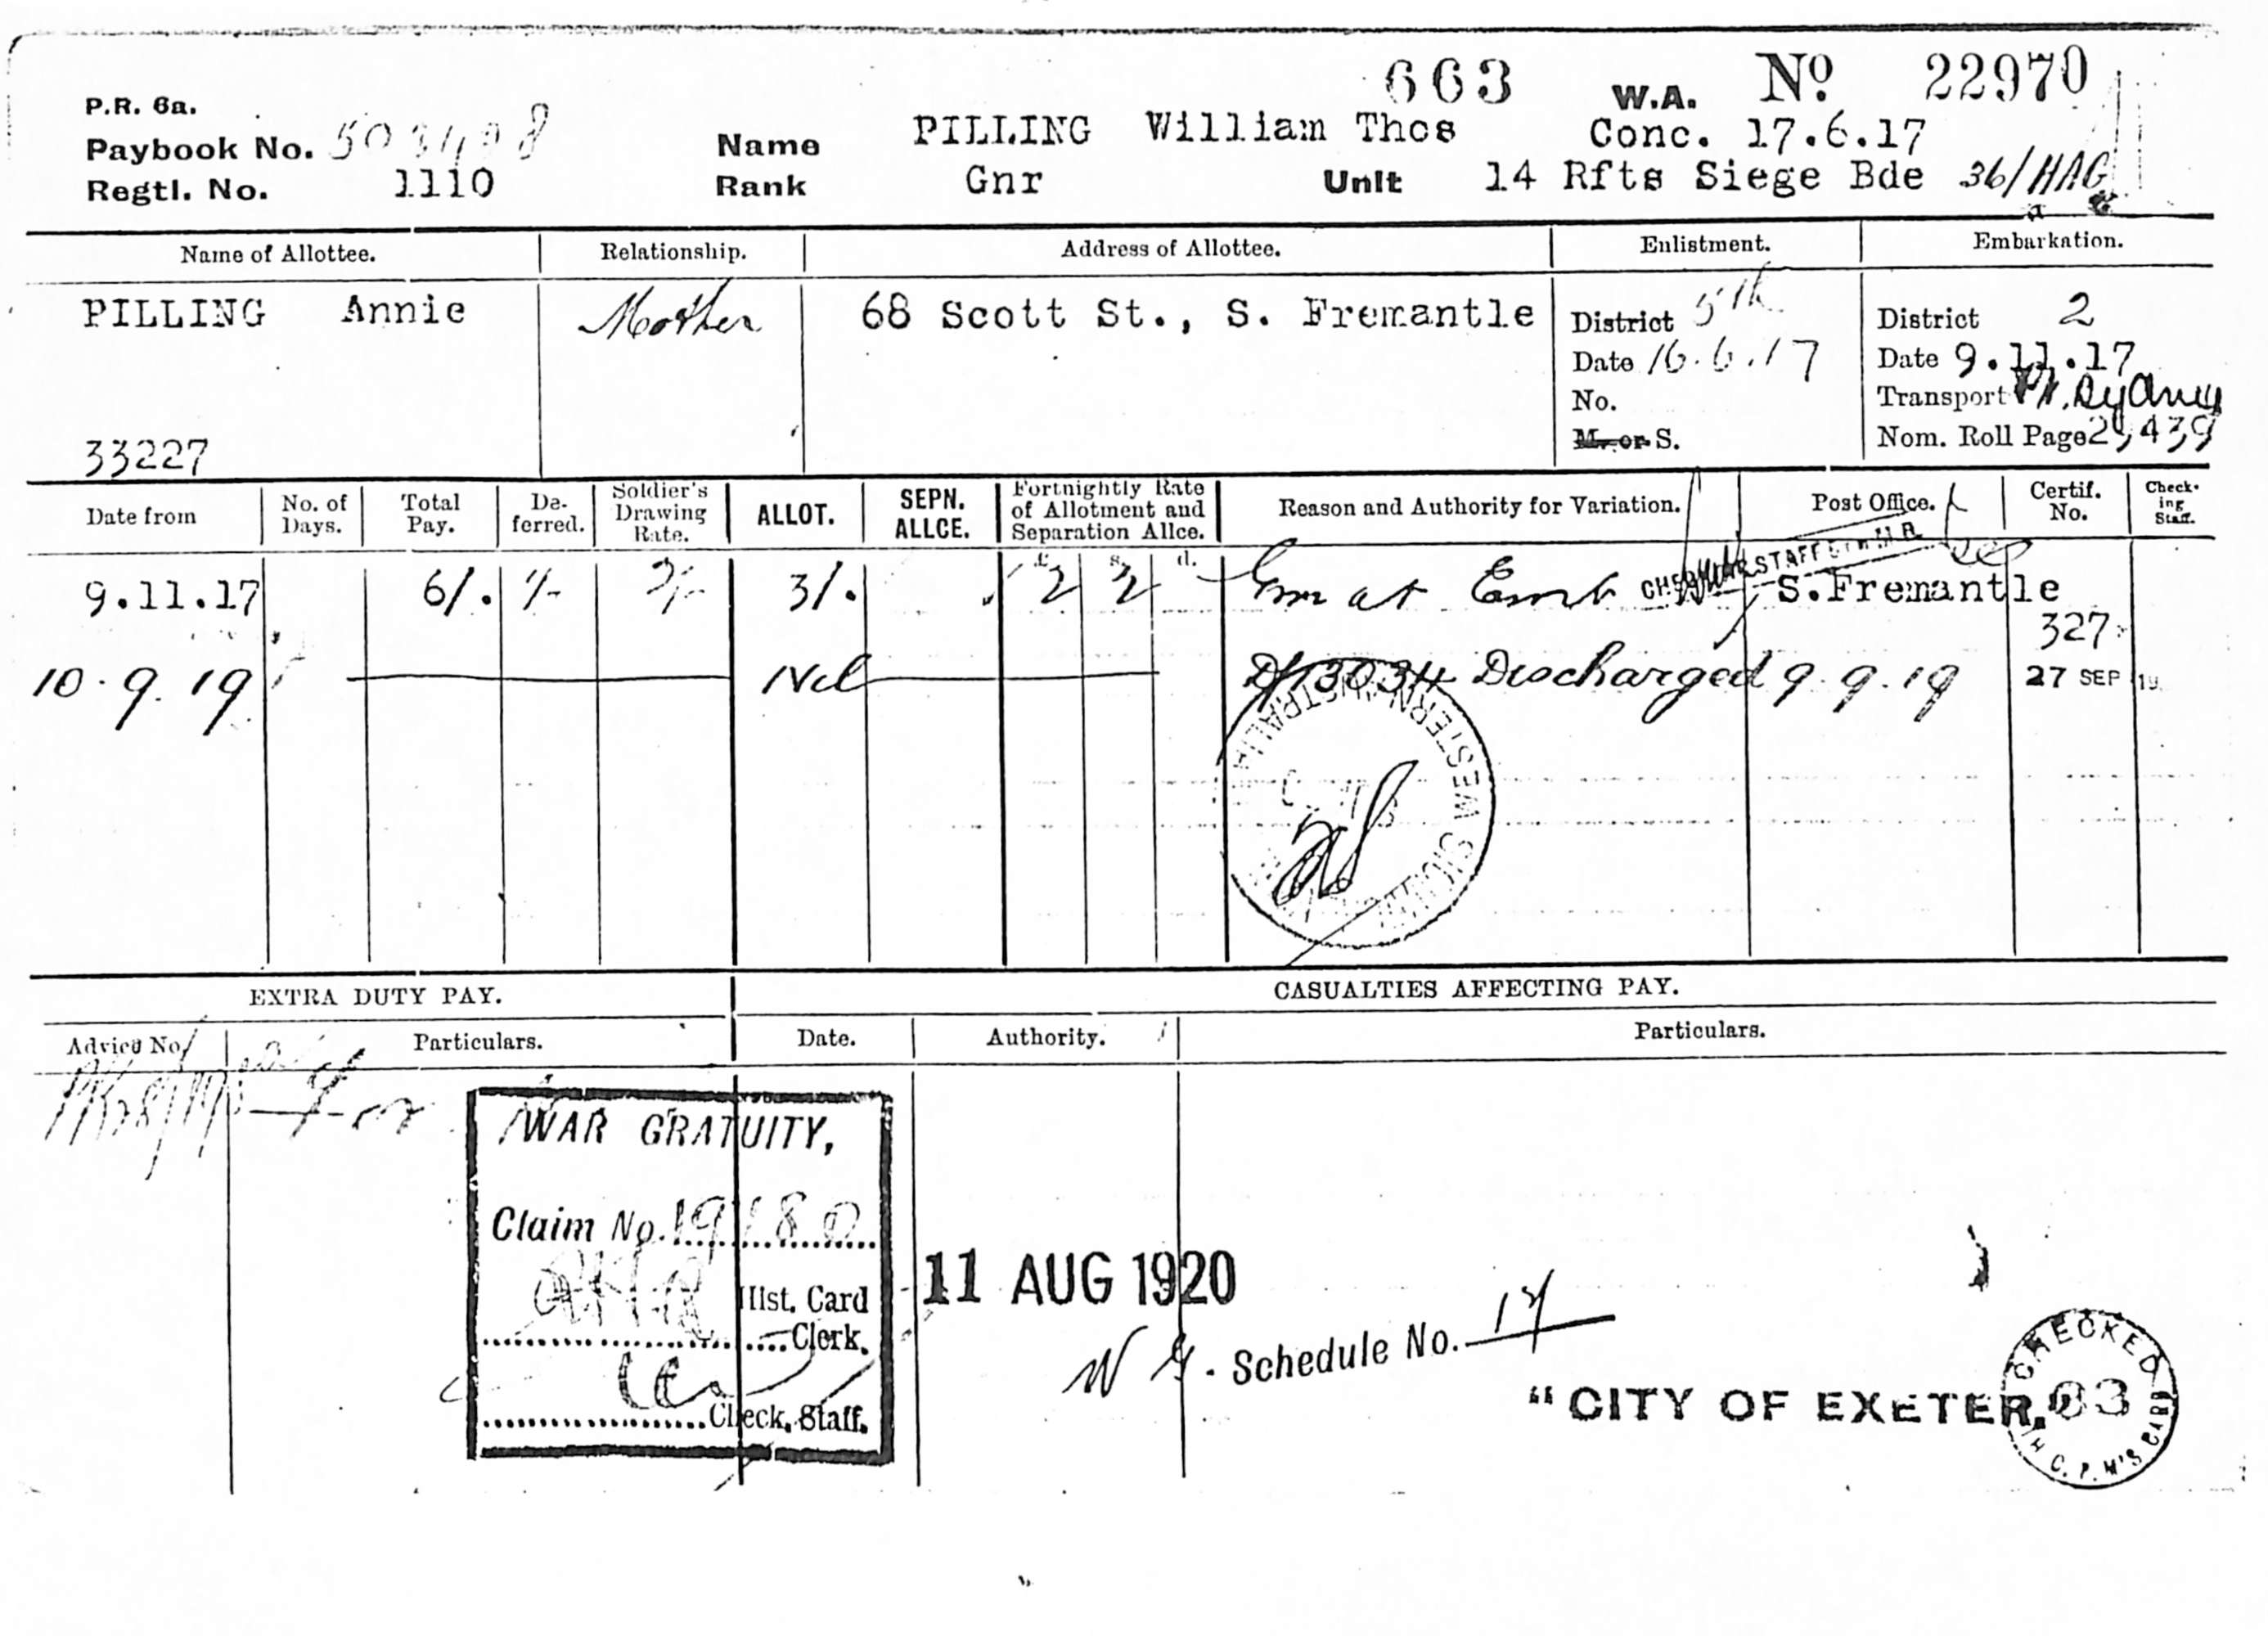 663 W.A. No 22970
P.R. 6a.
Paybook No.
Name PILLING William Thos Conc. 17.6.17
Regtl. No. 1110 Rank Gnr Unit 14 Rfts Siege Bde 36/HAG
Name of Allottee. Relationship. Address of Allottee. Enlistment. Embarkation.
PILLING Annie Mother 68 Scott St., S. Fremantle
District 5th District 2
Date 16.6.17 Date 9.11.17
No. Transport Sydney
M. or S. Nom. Roll Page 29,439
33227
Date from No. of Days. Total Pay. De-ferred. Soldier's Drawing Rate. ALLOT. SEPN. ALLCE. Fortnightly Rate of Allotment and Separation Allce. Reason and Authority for Variation. Post Office. Certif. No. Check-ing Staff.
£ s. d.
9.11.17 6/. 1/- 2/- 3/. 2 2 Gnr at Emb S.Fremantle
327
10.9.19 Nil D/13034 Discharged 9.9.19 27 SEP 19
WESTERN AUSTRALIA
EXTRA DUTY PAY. CASUALTIES AFFECTING PAY.
Advice No. Particulars. Date. Authority. Particulars.
WAR GRATUITY,
Claim No. 19180
Hist. Card
Clerk.
Check. Staff.
11 AUG 1920
W G. Schedule No. 17
"CITY OF EXETER."
CHECKED
63
WITH C.P.M'S CARD